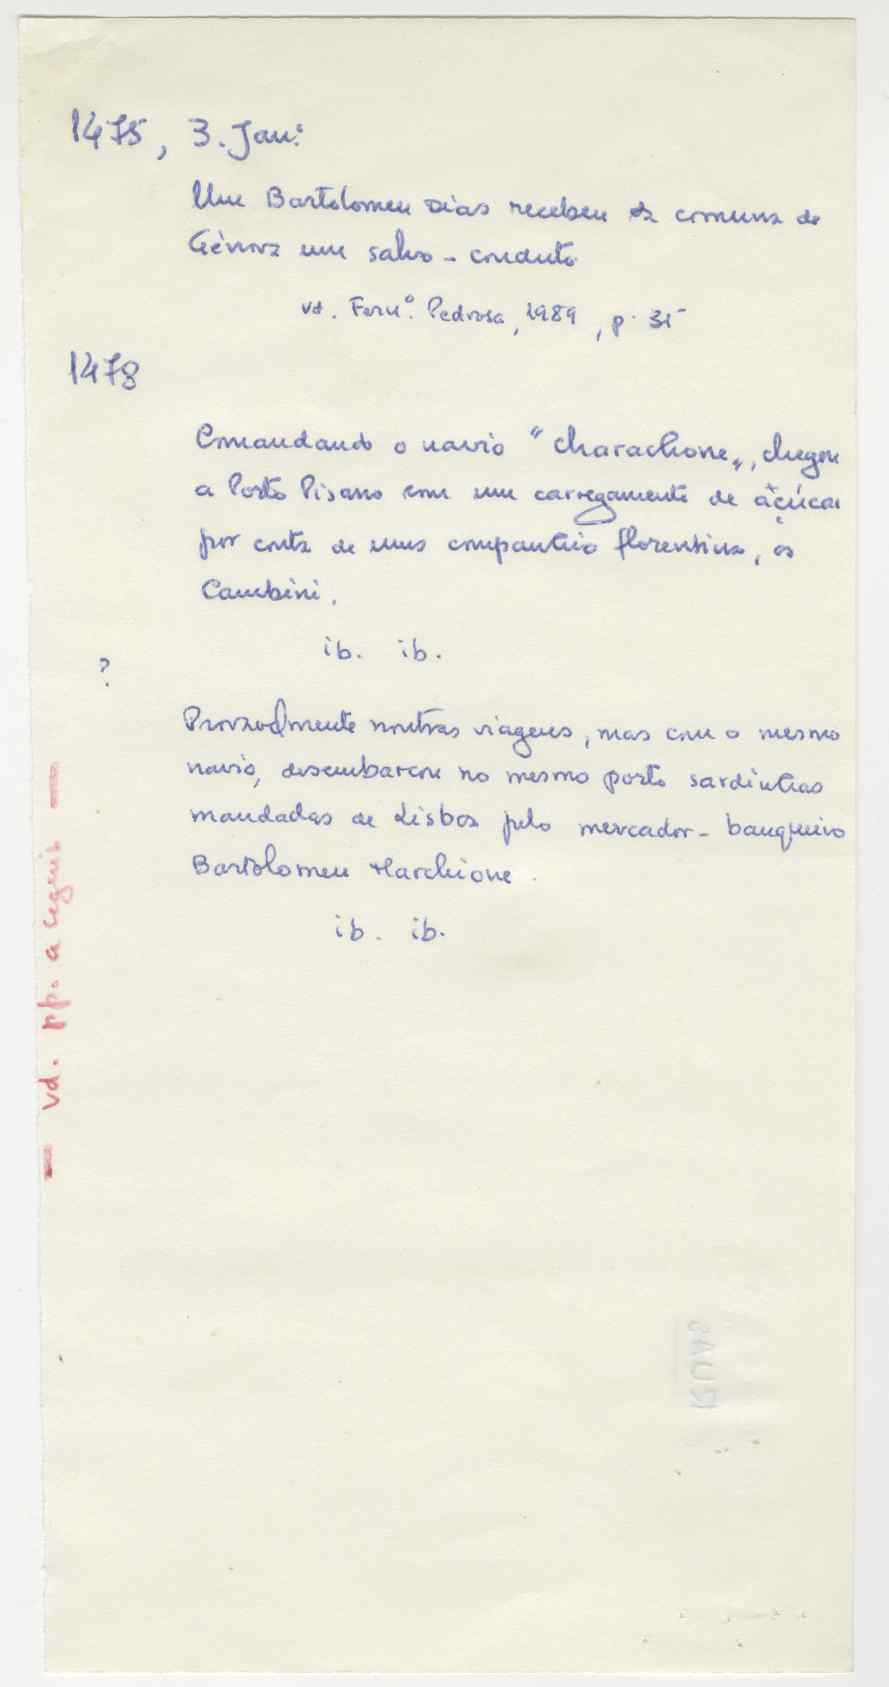 1475, 3. Janº:
Um Bartolomeu Dias recebeu da comuna de
Génova um salvo-conduto
vd. Fernº. Pedrosa, 1989, p. 35
1478
Comandando o navio "Charachone", chegou
a Porto Pisano com um carregamento de açúcar
por conta de uma companhia florentina, os
Cambini.
ib. ib.
?
Provavelmente noutras viagens, mas com o mesmo
navio, desembarcou no mesmo porto sardinhas
mandadas de Lisboa pelo mercador-banqueiro
Bartolomeu Marchione.
ib. ib.
— vd. pp. a seguir —